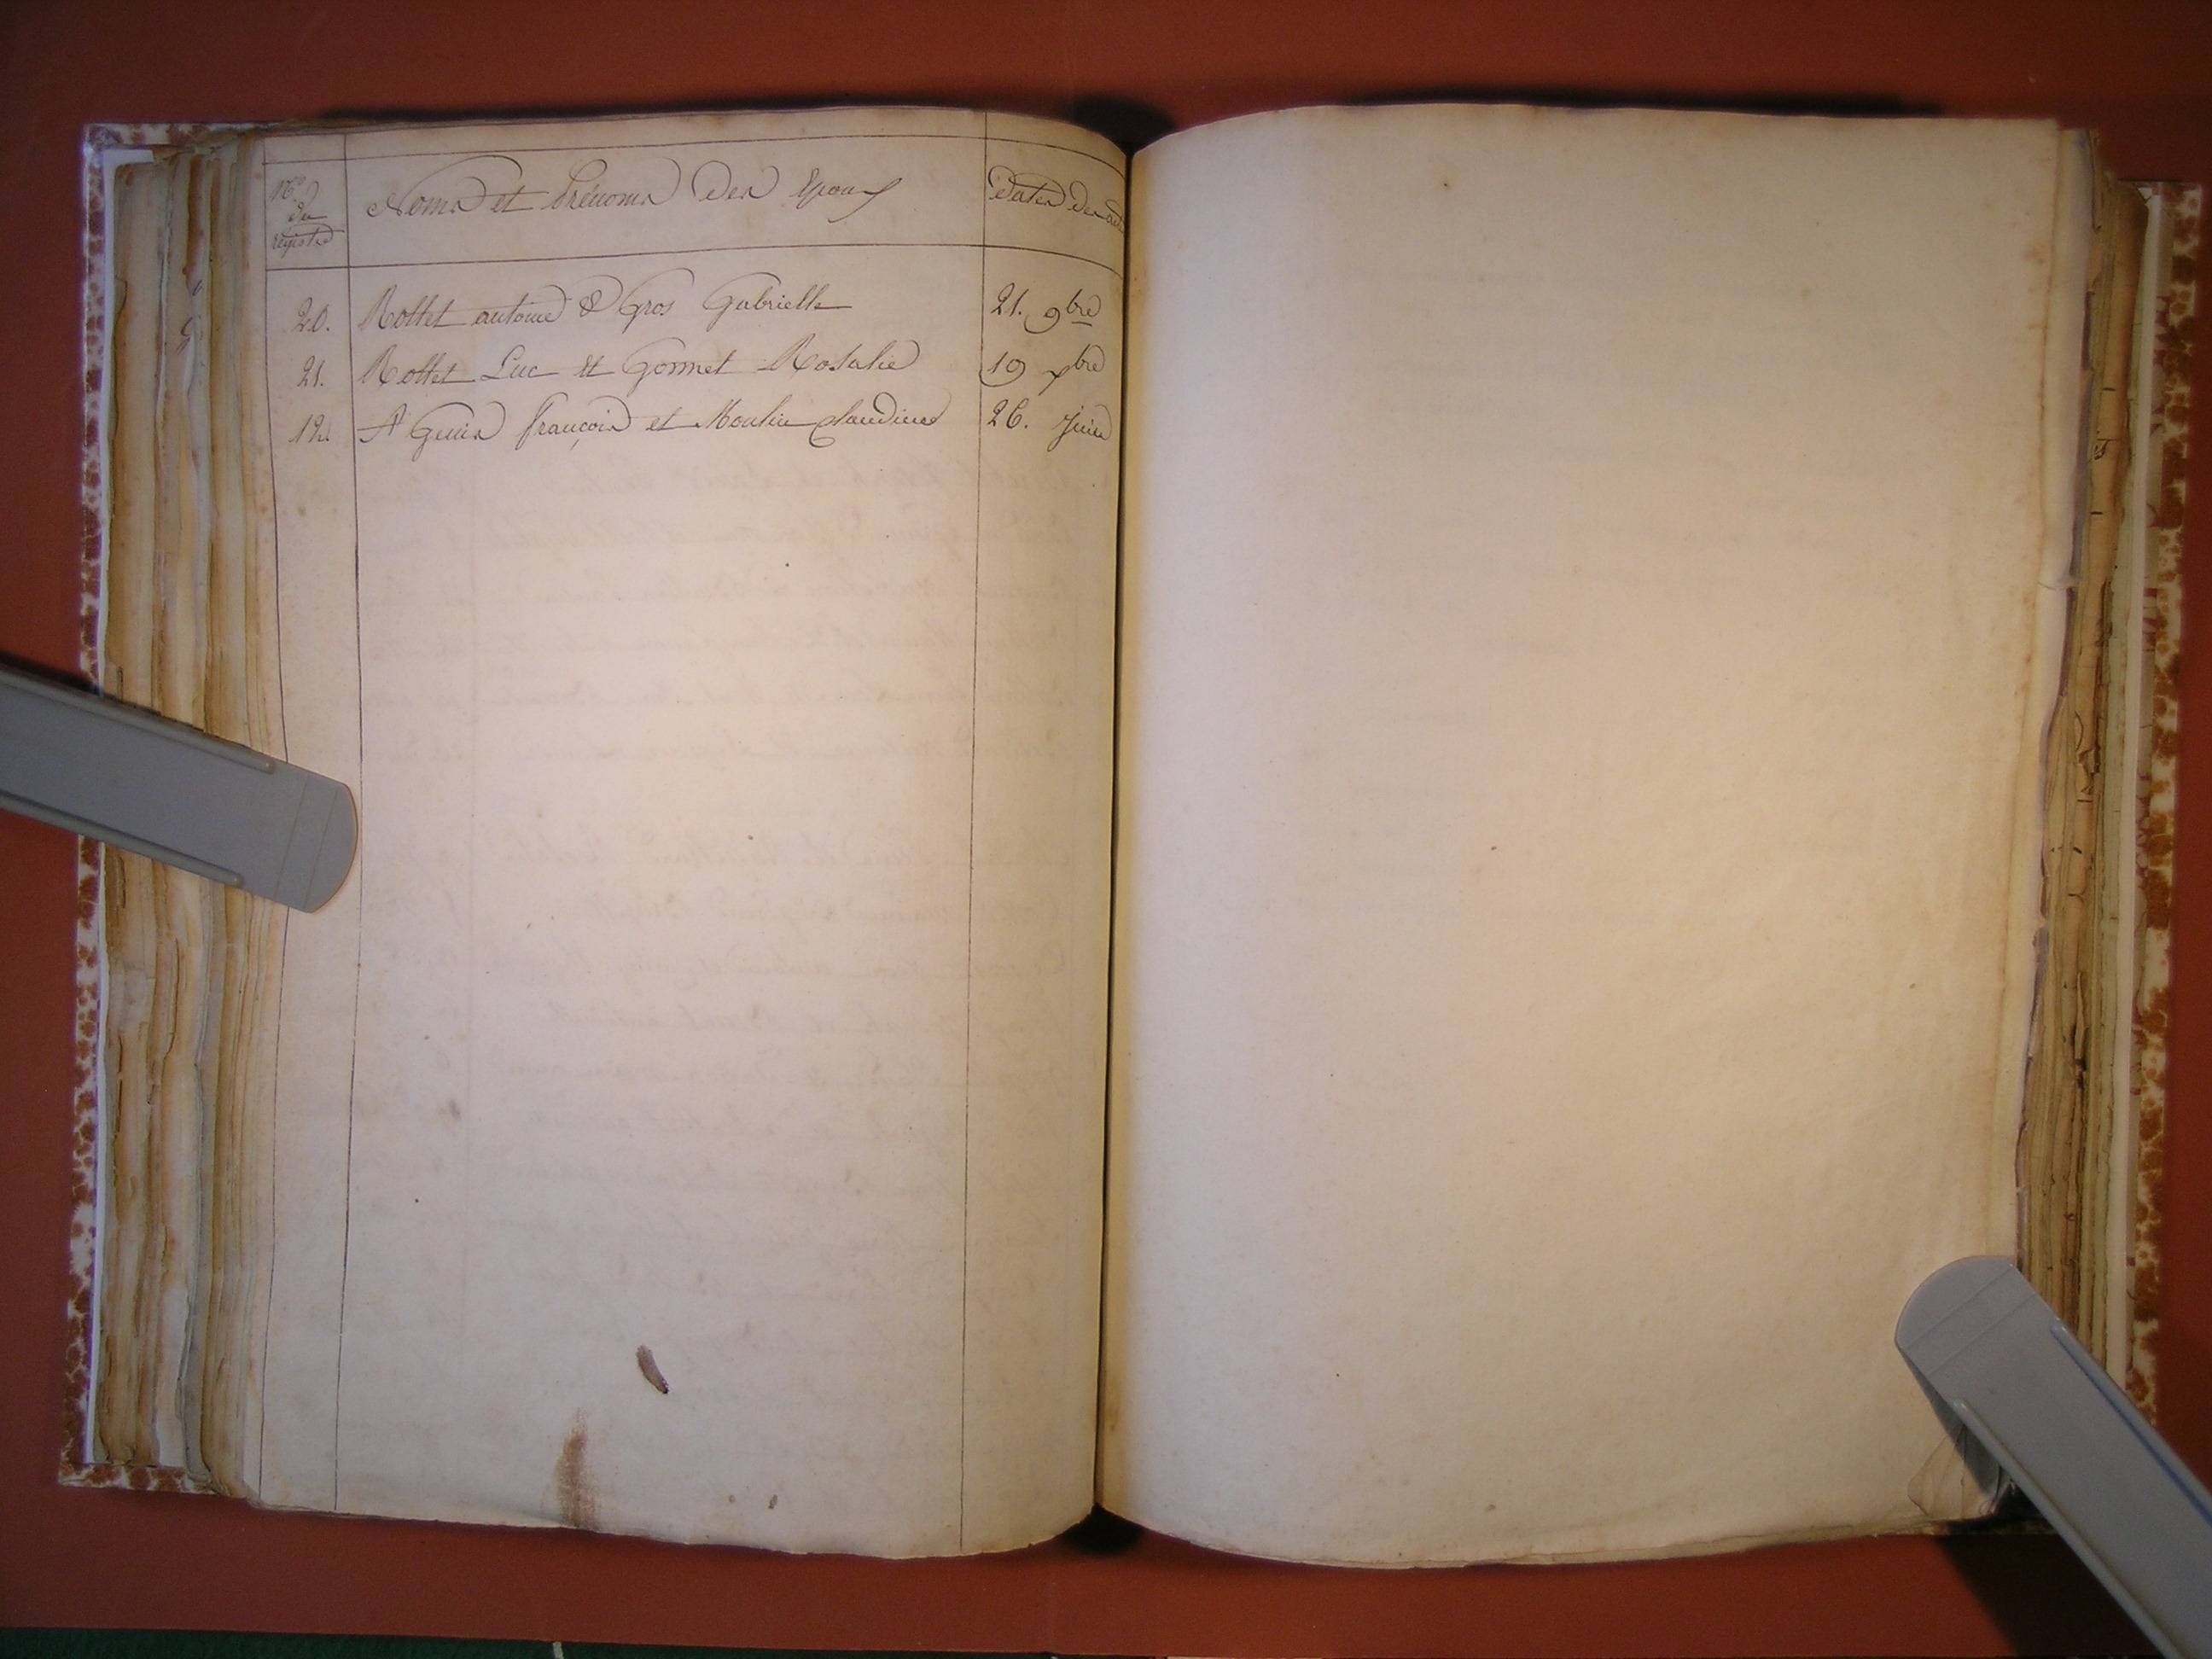 Nos du registre
Noms et Prénoms des Epoux
Dates des actes
20. Rollet antoine & Gros Gabrielle 21. 9bre
21. Rollet Luc et Gonnet Rosalie 19 xbre
12. St Genis françois et Moulin claudine 26. juin